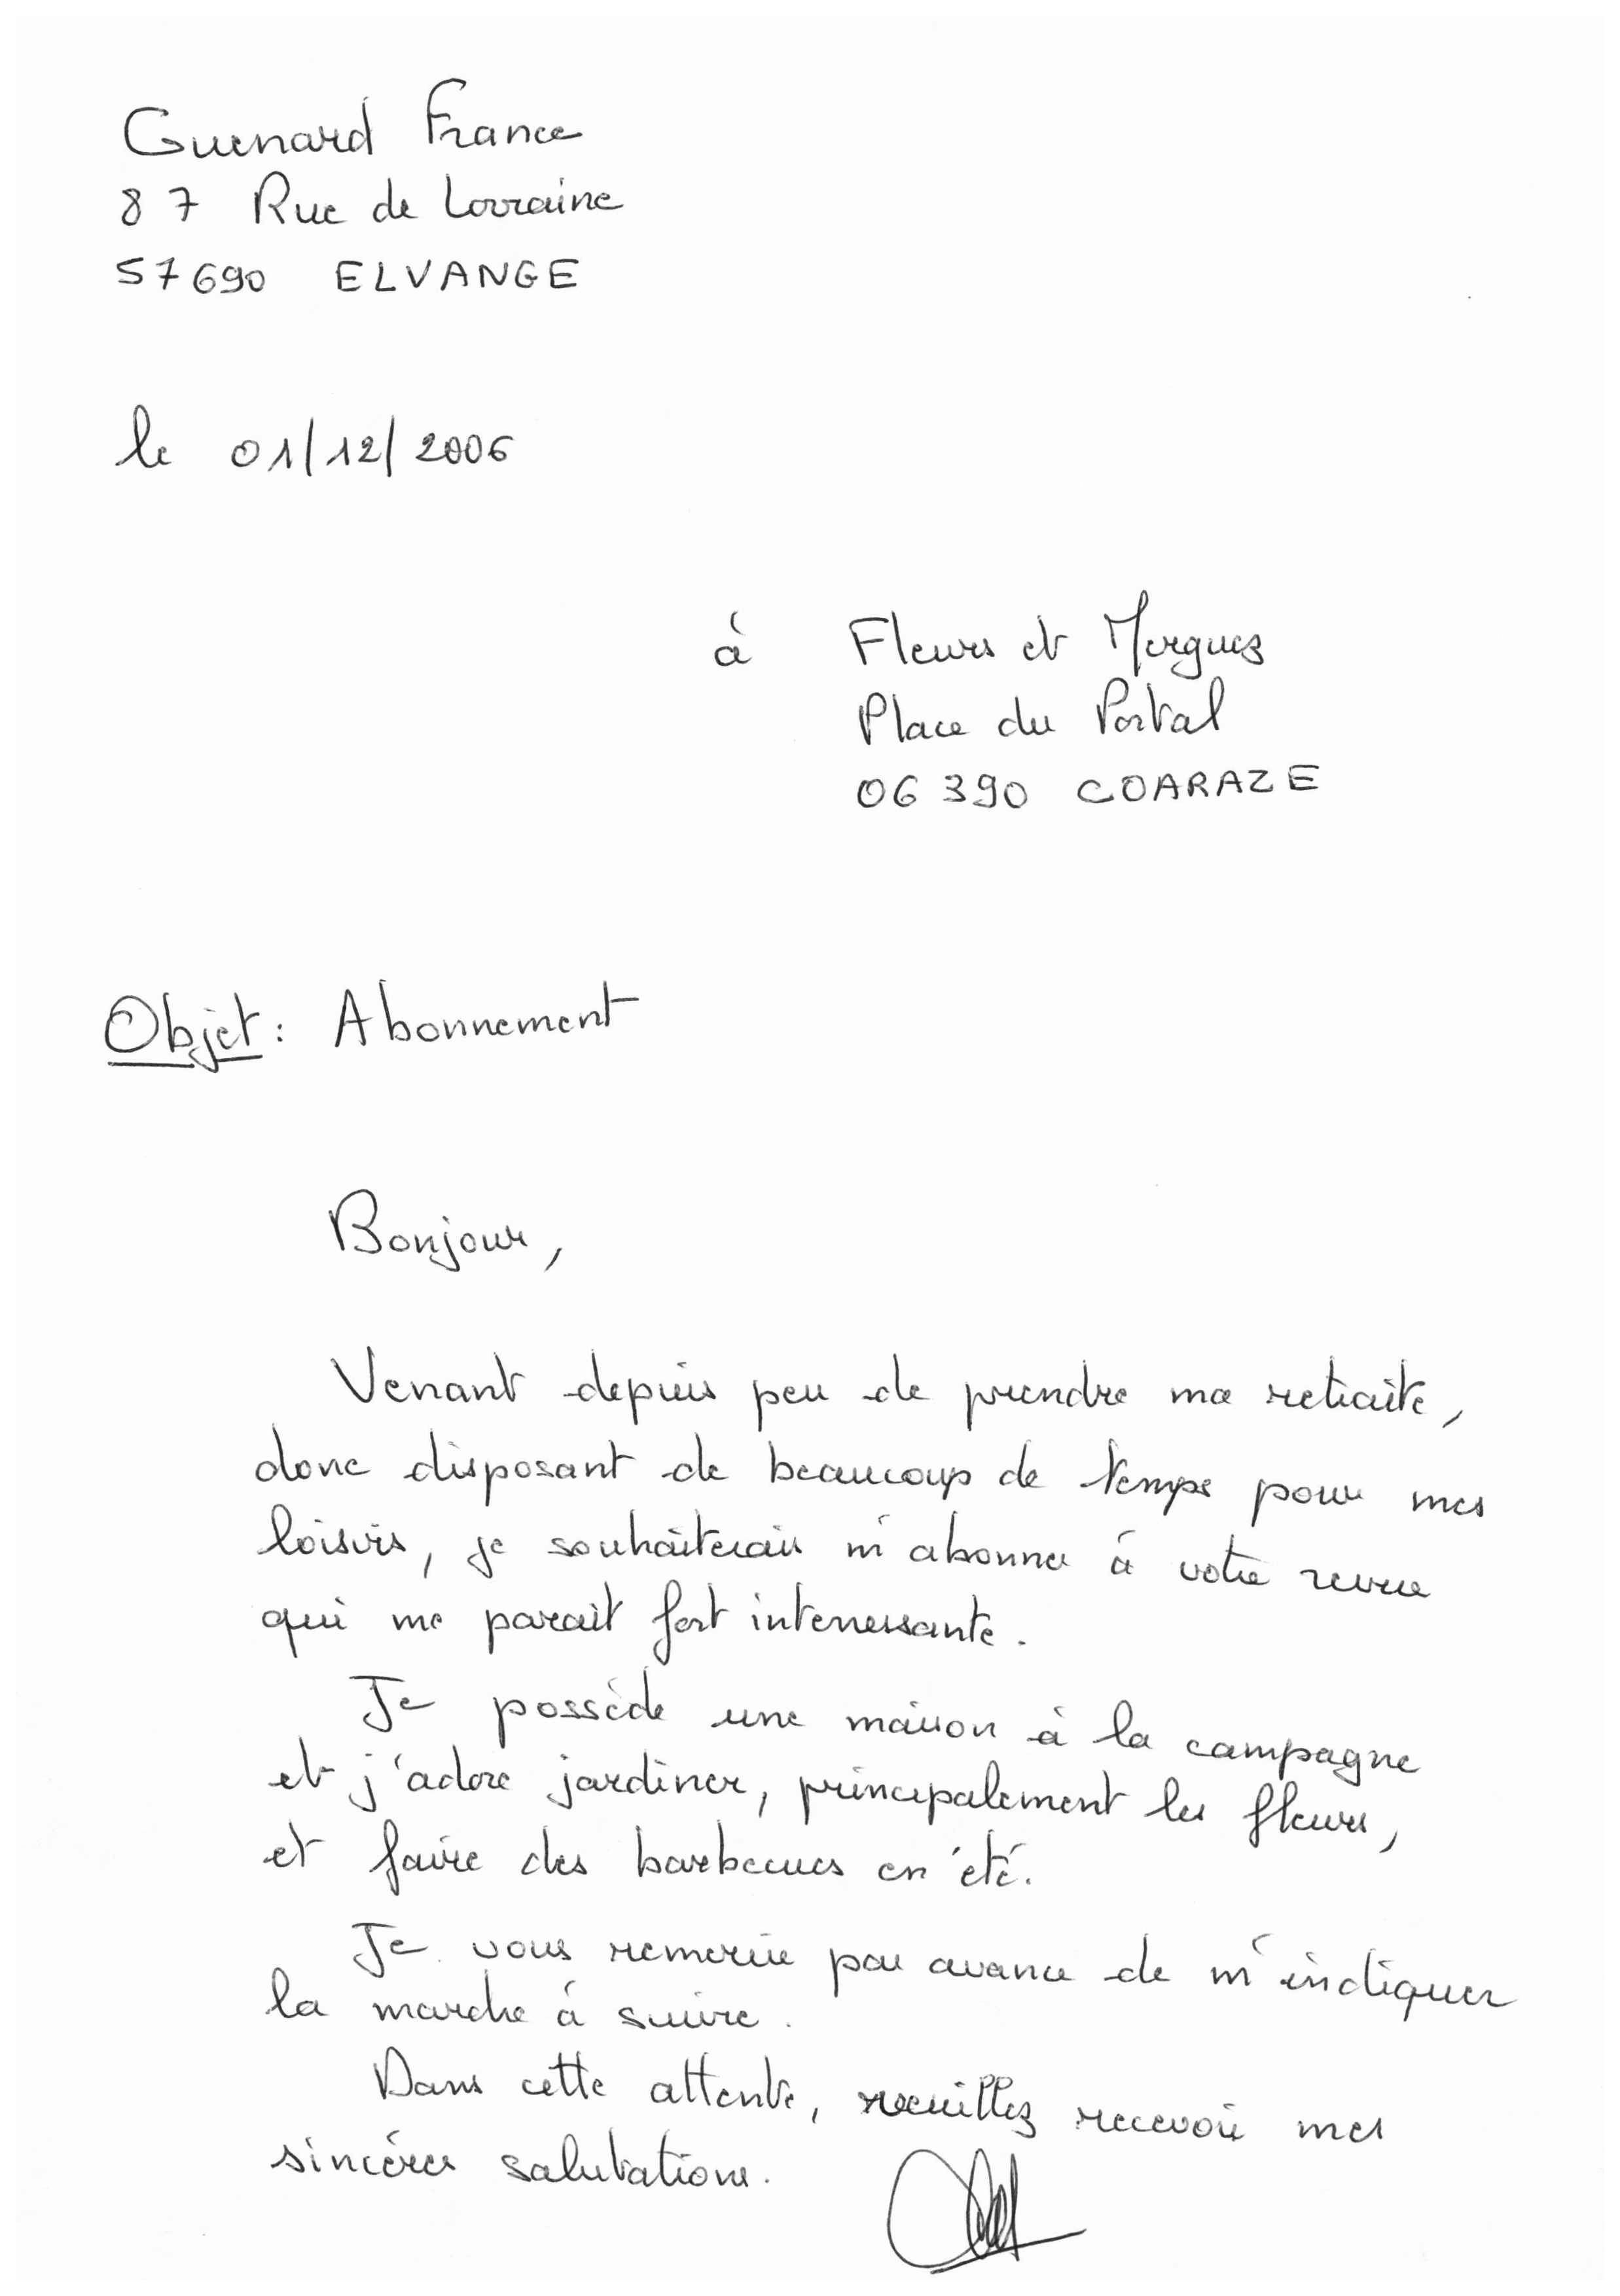 Guenard France
87 Rue de Lorraine
57690 ELVANGE
le 01/12/2006
à Fleurs et Merguez
Place du Portal
06390 COARAZE
Objet : Abonnement
Bonjour,
Venant depuis peu de prendre ma retraite,
donc disposant de beaucoup de temps pour mes
loisirs, je souhaiterais m'abonner à votre revue
qui me parait fort interressante.
Je possède une maison à la campagne
et j'adore jardiner, principalement les fleurs,
et faire des barbecues en été.
Je vous remercie par avance de m'indiquer
la marche à suivre.
Dans cette attente, veuillez recevoir mes
sincéres salutations.